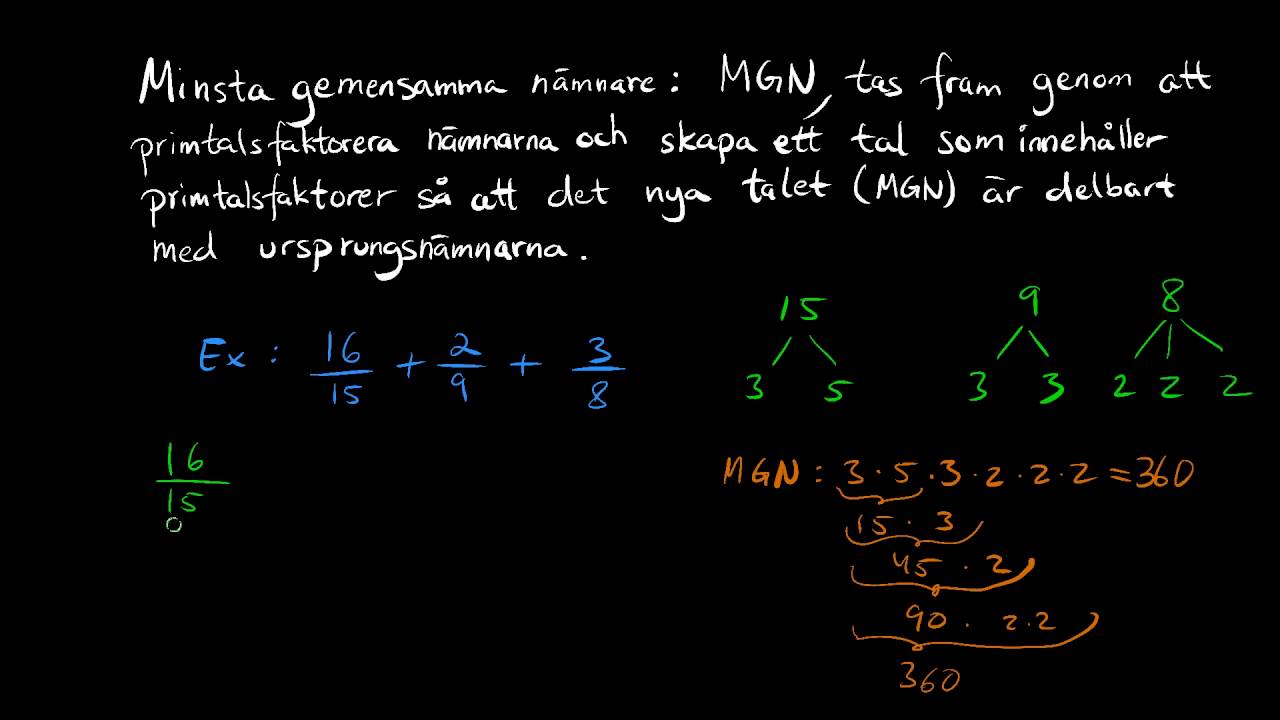 Minsta gemensamma nämnare: MGN, tas fram genom att
primtalsfaktorera nämnarna och skapa ett tal som innehåller
primtalsfaktorer så att det nya talet (MGN) är delbart
med ursprungsnämnarna.
Ex: 16/15 + 2/9 + 3/8
15
3 5
9
3 3
8
2 2 2
16/15
MGN: 3·5·3·2·2·2=360
15·3
45·2
90·2·2
360